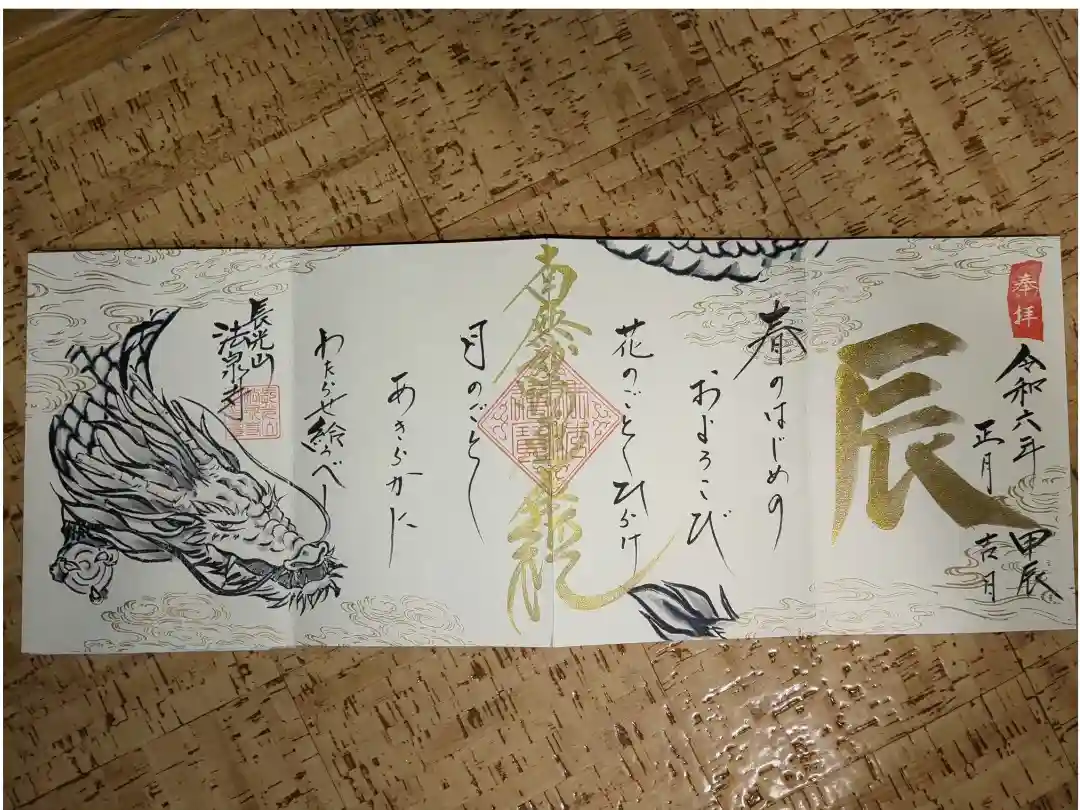 奉拝
令和六年 甲辰
正月 吉月
辰
春のはじめの
およろこび
花のごとくひらけ
月のごとく
あきらかに
わたらせ給うべし
長光山
法泉寺